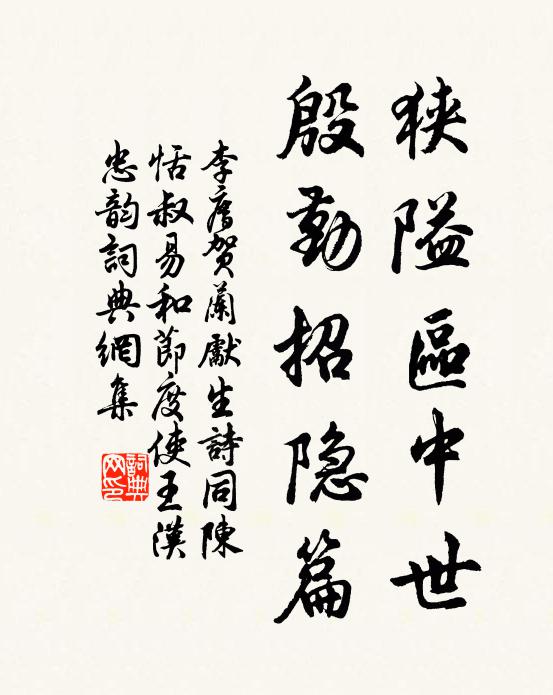 狹隘區中世
殷勤招隐篇
李廌贺蘭獻生詩同陳
恬叔易和節度使王漢
忠韵詞典網集
詞典网印